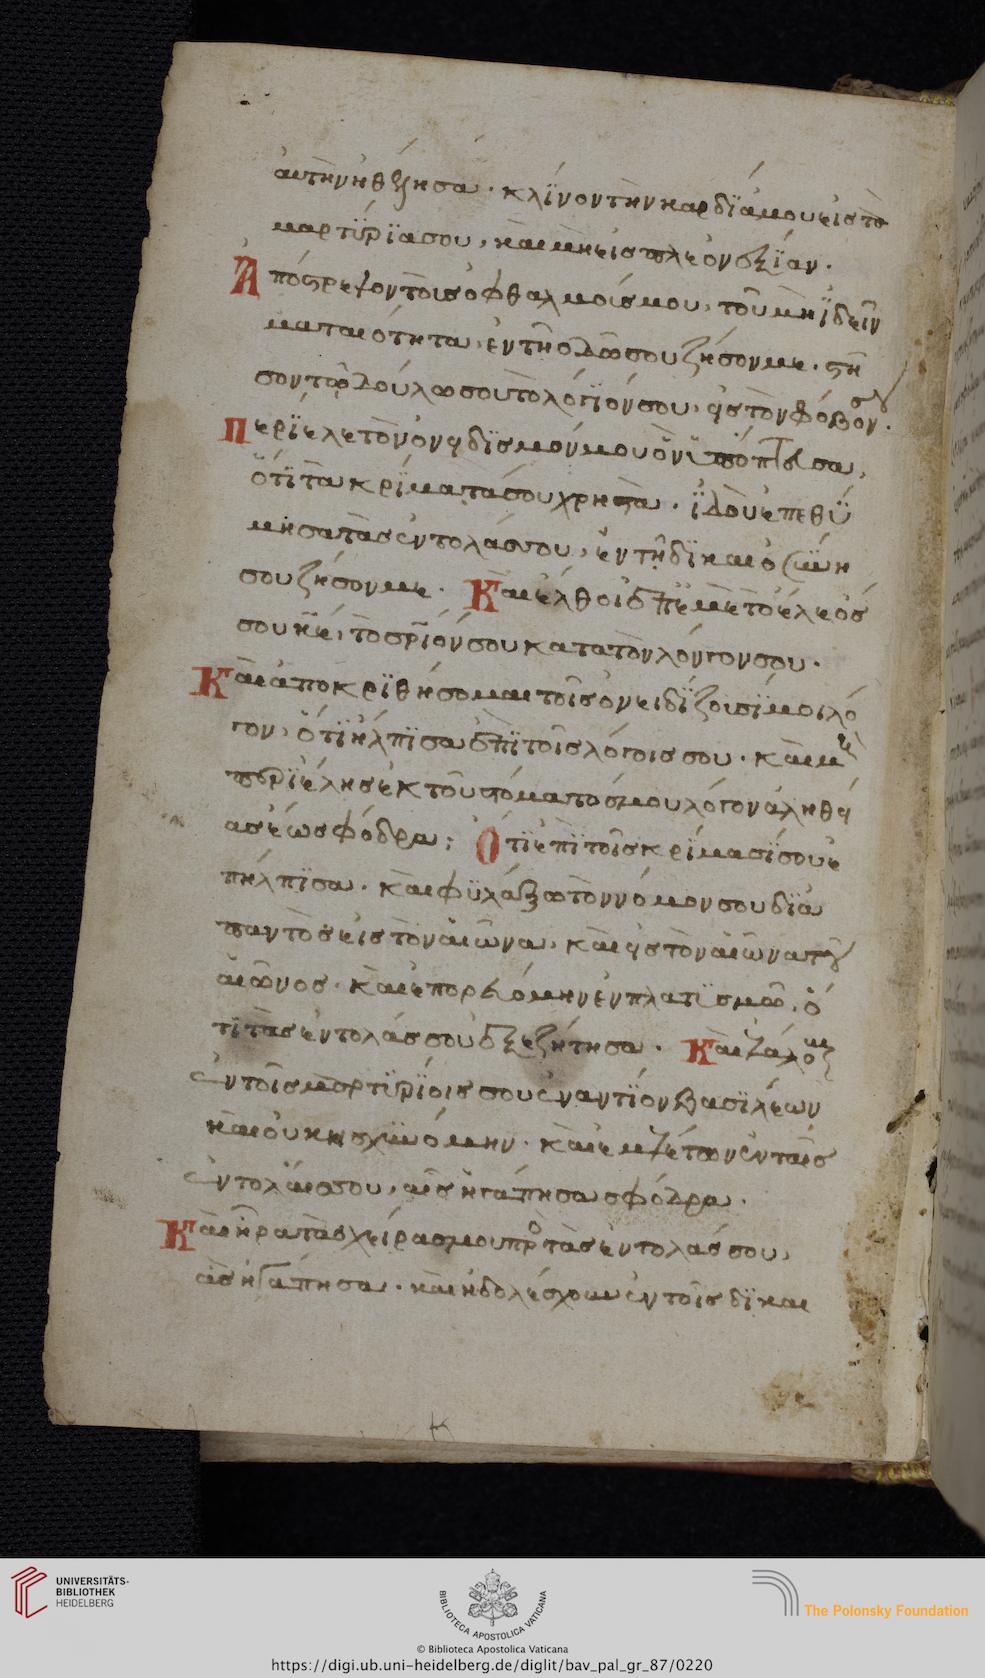 αυτὴν ἠθέλησα· κλίνον τὴν καρδΐαν μου εἰς τὰ
μαρτΰρϊα σου, καὶ μὴ εἰς πλεονεξΐαν·
Ἀπόστρεψον τοὺς ὀφθαλμούς μου, τοῦ μὴ ϊδεῖν
ματαιότητα, ἐν τῆ ὁδῶ σου ζήσον με· στῆ
σον τῶ δούλω σου τὸ λόγϊόν σου, εἰς τὸν φόβον σου·
Περΐελε τὸν ὀνειδϊσμόν μου ὃν ὑπόπτευσα,
ὅτϊ τὰ κρΐματά σου χρηστὰ· ϊδοὺ ἐπεθΰ
μησα τὰς ἐντολάς σου, ἐν τῆ δϊκαιοσύνη
σου ζήσον με· Καὶ ἔλθοι ἐπ' ἐμὲ τὸ ἔλεός
σου κε, τὸ σρϊόν σου κατὰ τὸν λόγον σου·
Καὶ ἀποκρϊθήσομαι τοῖς ὀνειδΐζουσΐ μοι λό
γον, ὅτϊ ἤλπϊσα ἐπϊ τοῖς λόγοις σου· καὶ μὴ
περϊέλης ἐκ τοῦ στόματός μου λόγον ἀληθεί
ας ἕως φόδρα; Ὅτϊ ἐπϊ τοῖς κρίμασΐ σου ἐ
πήλπϊσα· καὶ φϋλάξω τὸν νόμον σου δϊὰ
παντὸς εἰς τὸν αἰῶνα, καὶ εἰς τὸν αἰῶνα τοῦ
αἰῶνος· καὶ ἐπορευόμην ἐν πλατϋσμῶ, ὅ
τϊ τὰς ἐντολάς σου ἐξεζήτησα· Καὶ ἐλάλουν
ἐν τοῖς μαρτϋρΐοις σου ἐναντΐον βασϊλέων
καὶ οὐκ ησχϋνόμην· καὶ ἐμελέτων ἐν ταῖς
ἐντολαῖς σου, αἷς ἠγάπησα σφόδρα·
Καὶ ἦρα τὰς χεῖρας μου πρὸς τὰς ἐντολάς σου,
ἃς ἠγάπησα· καὶ ἠδολέσχουν ἐν τοῖς δϊκαι
UNIVERSITÄTS-
BIBLIOTHEK
HEIDELBERG
BIBLIOTECA APOSTOLICA VATICANA
The Polonsky Foundation
© Biblioteca Apostolica Vaticana
https://digi.ub.uni-heidelberg.de/diglit/bav_pal_gr_87/0220